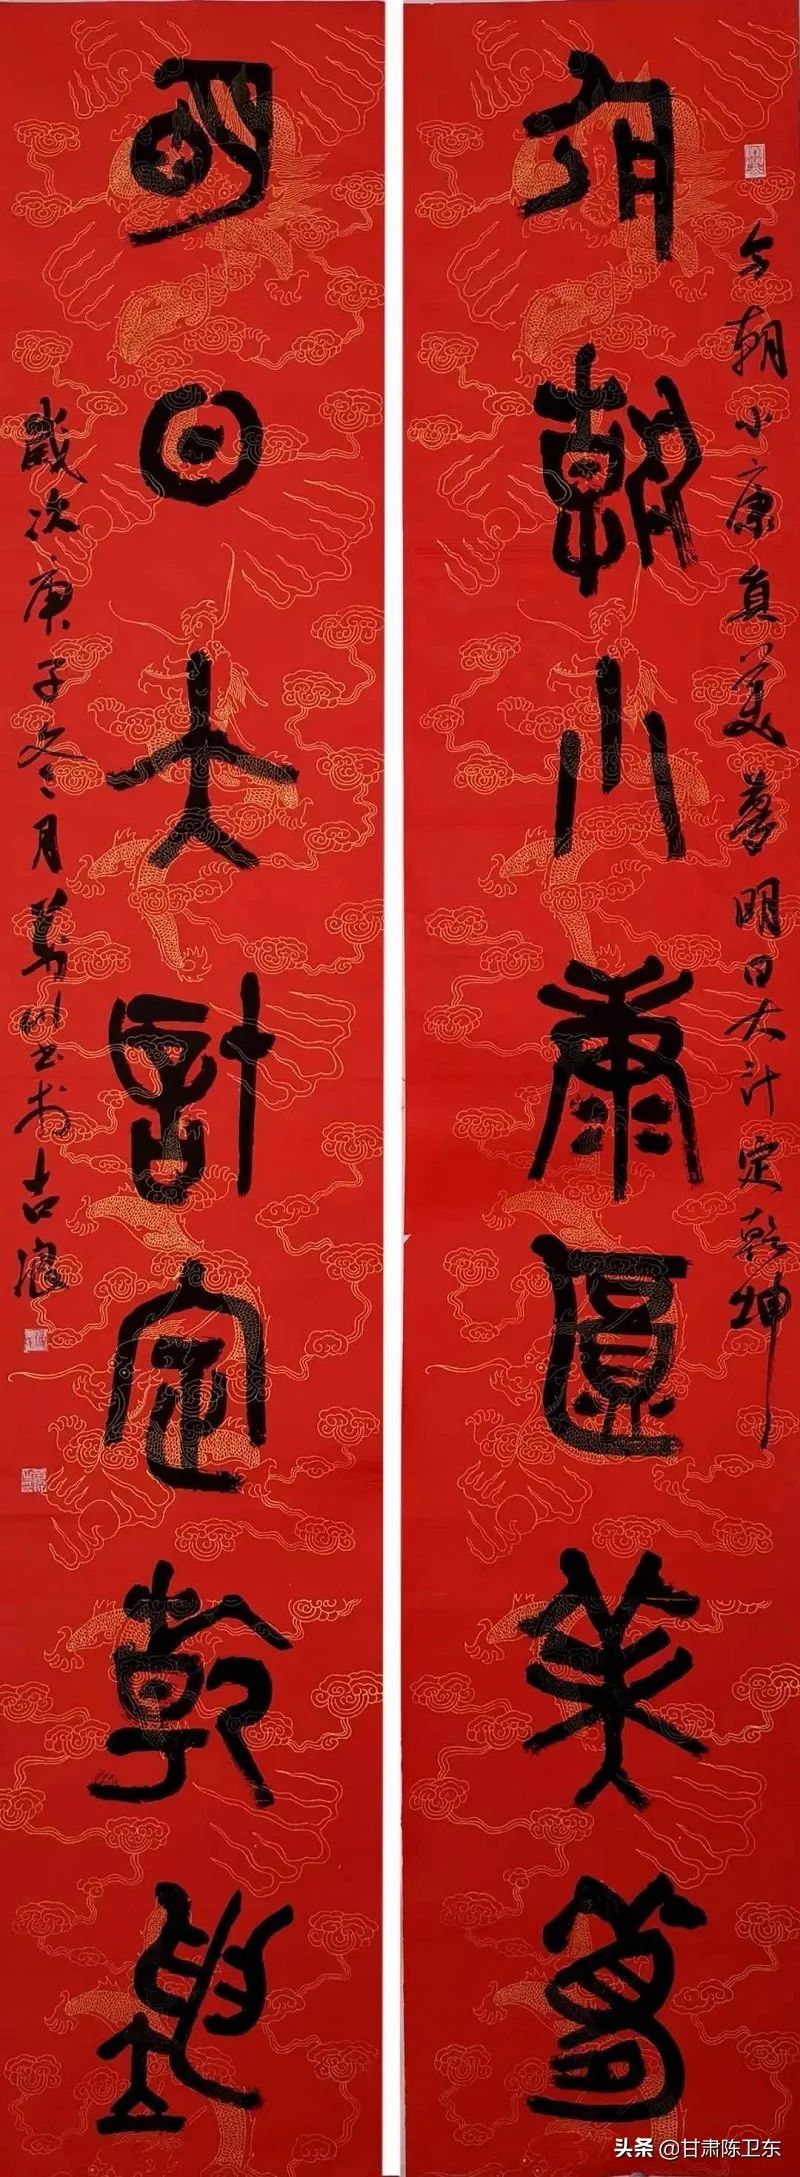 今朝小康真美夢明日大计定乾坤
今朝小康真美夢
明日大計定乾坤
歲次庚子冬月萬书於古浪
头条 @甘肃陈卫东